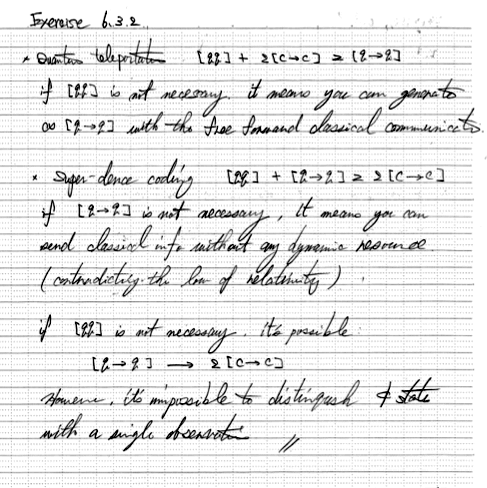 Exercise 6.3.2.
* Quantum teleportation [qq] + 2[c→c] ≥ [q→q]
if [qq] is not necessary. it means you can generate
∞ [q→q] with the free forward classical communication.
* Super-dence coding [qq] + [q→q] ≥ 2[c→c]
if [q→q] is not necessary, it means you can
send classical info without any dynamic resource.
(contradicting the law of relativity).
if [qq] is not necessary. it's possible:
[q→q] → 2[c→c]
However, it's impossible to distinguish 4 state
with a single observation //